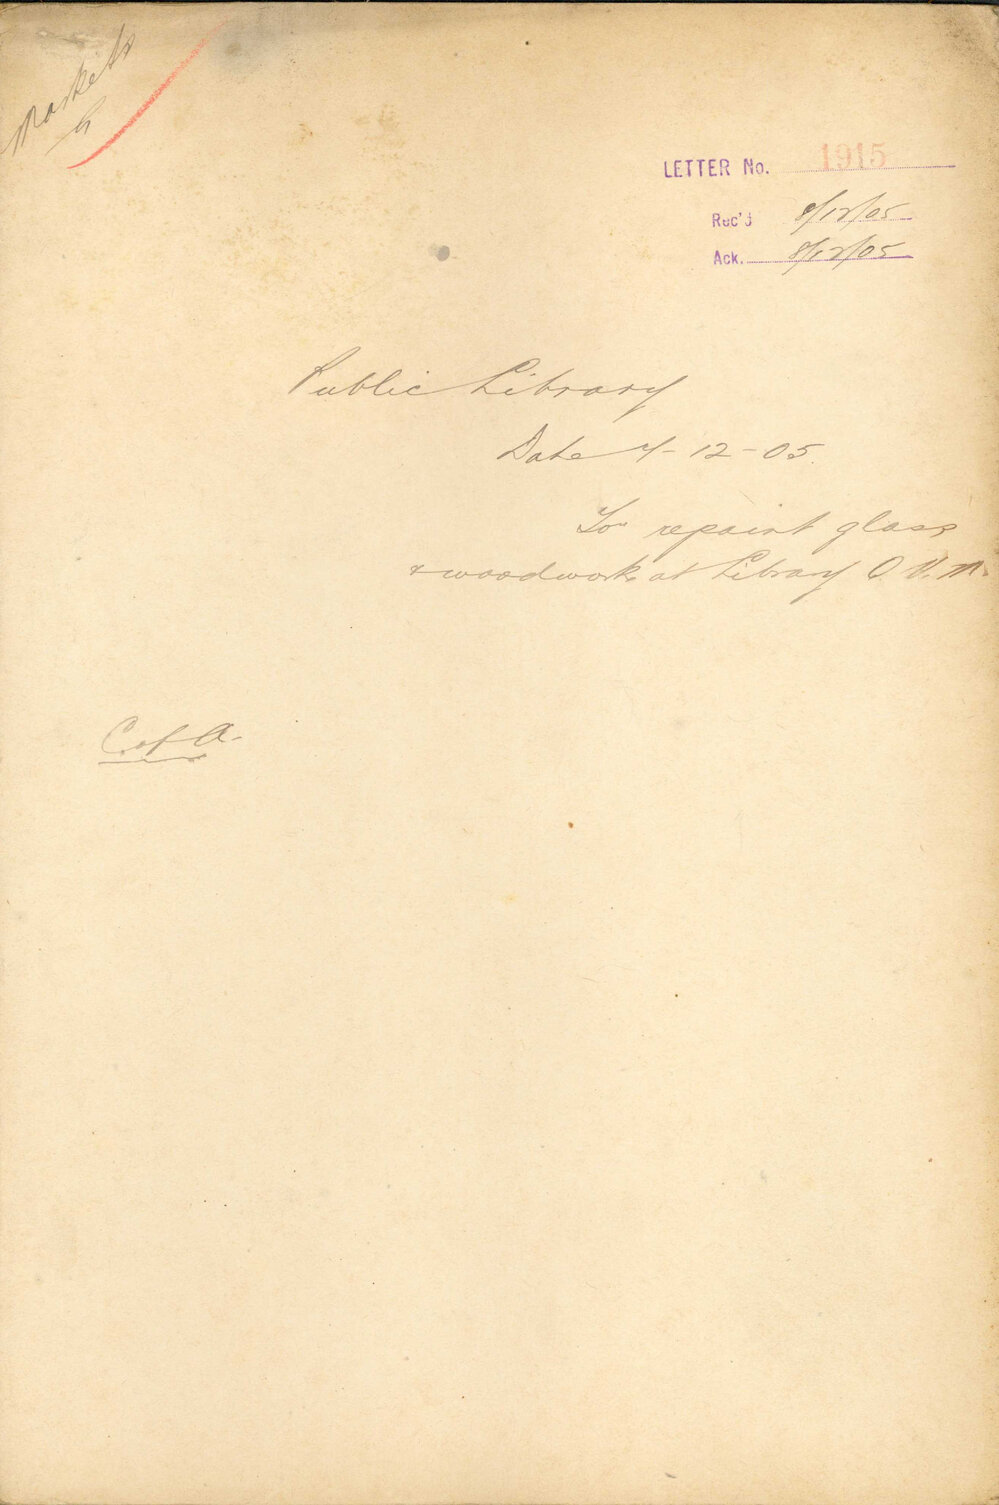 Markets
LETTER No. 1915
Rec'd 8/12/05
Ack. 8/12/05
Public Library
Date 7-12-05
To repaint glass
& woodwork at Library Q.V.M.
C of A.